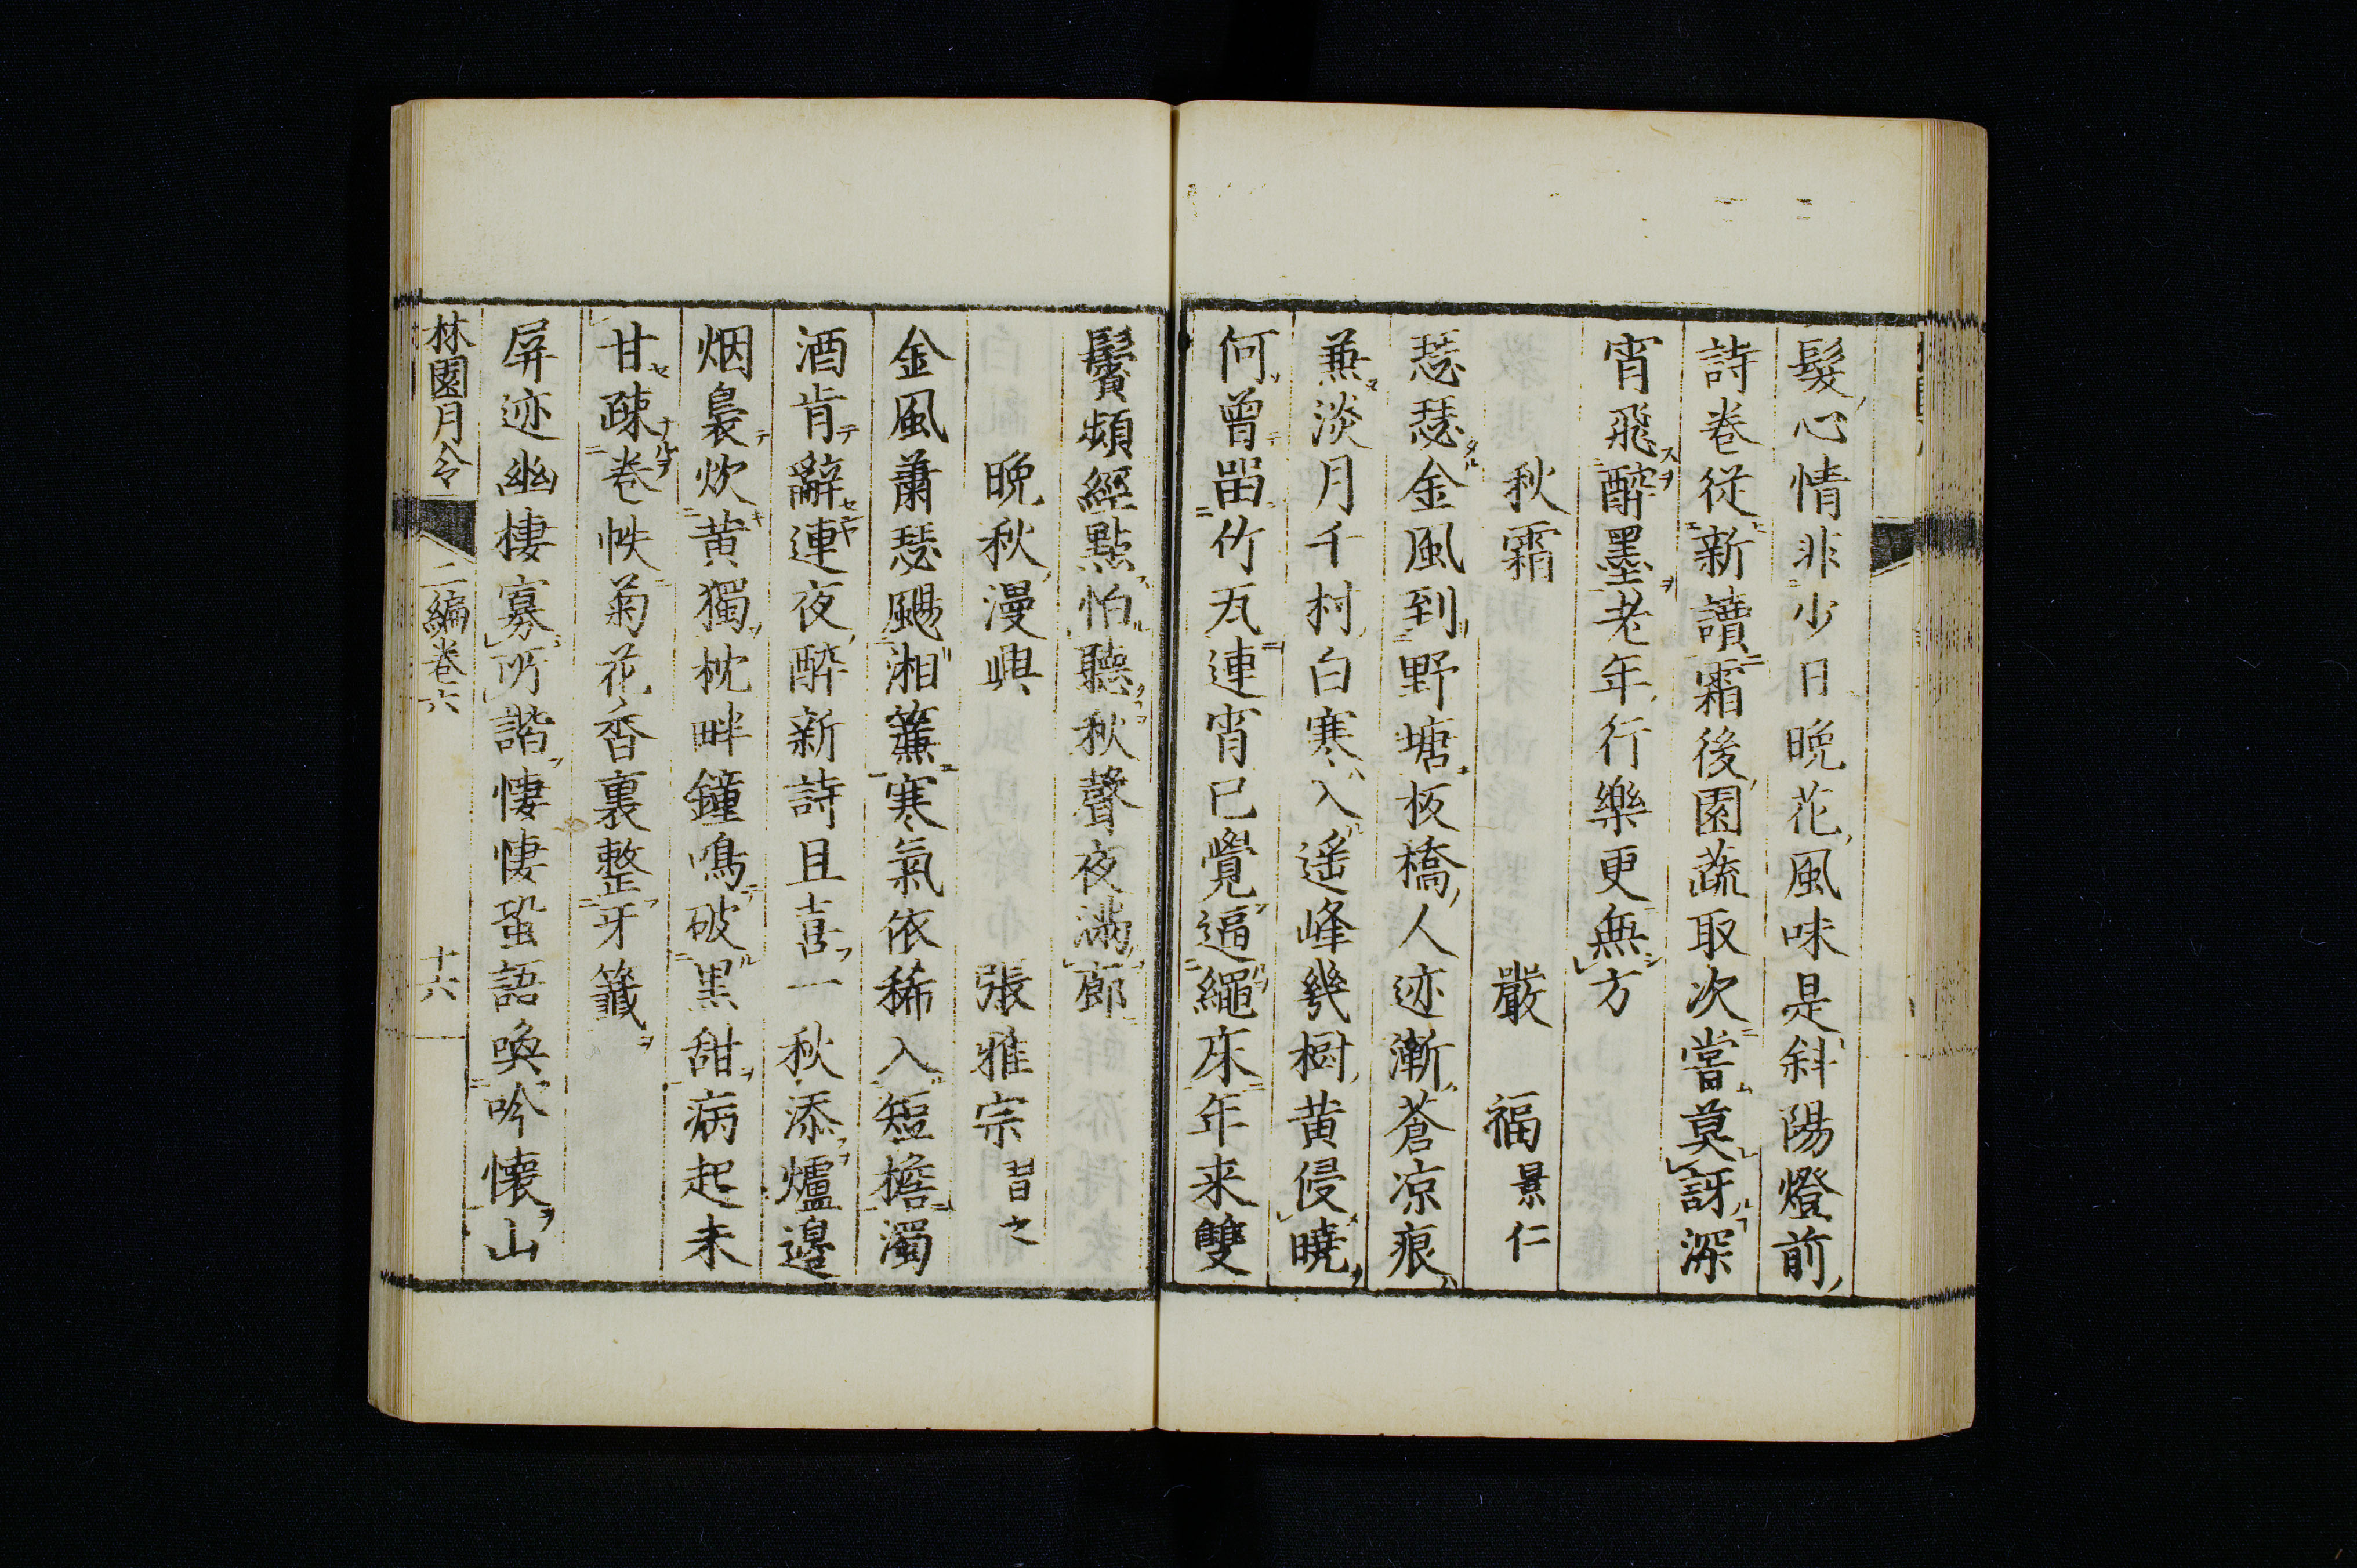 髮心情非少日晩花風味是斜陽燈前
詩卷從新讀霜後園蔬取次嘗莫訝深
宵飛醉墨老年行樂更無方
秋霜 嚴福 景仁
瑟瑟金風到野塘板橋人迹漸蒼凉痕
兼淡月千村白寒入遥峰幾樹黄侵曉
何曾留竹瓦連宵已覺逼繩床年来雙
鬢頻經點怕聽秋聲夜滿廊
晩秋漫興 張雅宗 昔之
金風蕭瑟颺湘簾寒氣依稀入短檐濁
酒肯辭連夜醉新詩且喜一秋添爐邊
烟裊炊黄獨枕畔鐘鳴破黒甜病起未
甘疎卷帙菊花香裏整牙籤
屏迹幽棲寡所諧悽悽蛩語喚吟懷山
林園月令 二編卷六 十六